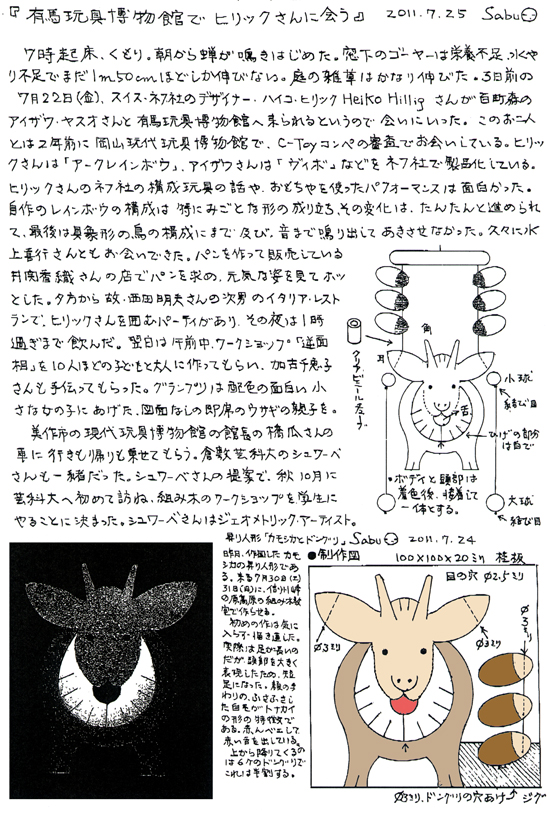 『有馬玩具博物館でヒリックさんに会う』 2011.7.25 Sabu
7時起床、くもり。朝から蝉が鳴きはじめた。窓下のゴーヤーは栄養不足、水や
り不足でまだ1m50cmほどしか伸びない。庭の雑草はかなり伸びた。3日前の
7月22日(金)、スイス・ネフ社のデザイナー・ハイコ・ヒリック Heiko Hillig さんが百町森の
アイザワ・ヤスオさんと有馬玩具博物館へ来られるというので会いにいった。このお二人
とは2年前に岡山現代玩具博物館で、C-Toyコンペの審査でお会いしている。ヒリッ
クさんは「アークレインボウ」、アイザワさんは「ヴィボ」などをネフ社で製品化している。
ヒリックさんのネフ社の構成玩具の話や、おもちゃを使ったパフォーマンスは面白かった。
自作のレインボウの構成は特にみごとな形の成り立ち、その変化は、たんたんと進められ
て、最後は具象形の鳥の構成にまで及び、音まで鳴り出してあきさせなかった。久々に水
上喜行さんともお会いできた。パンを作って販売している
井関香織さんの店でパンを求め、元気な姿を見てホッ
とした。夕方から故・西田明夫さんの次男のイタリア・レスト
ランで、ヒリックさんを囲むパーティがあり、その夜は1時
過ぎまで飲んだ。翌日は午前中、ワークショップ「逆面
相」を10人ほどの子どもと大人に作ってもらい、加古千恵子
さんも手伝ってもらった。グランプリは配色の面白い小
さな女の子にあげた、図面なしの即席のウサギの親子を。
美作市の現代玩具博物館の館長の橘瓜さんの
車に行きも帰りも乗せてもらう。倉敷芸科大のシュワーベ
さんも一緒だった。シュワーベさんの提案で、秋10月に
芸科大へ初めて訪ね、組み木のワークショップを学生に
やることに決まった。シュワーベさんはジェオメトリック・アーティスト。
クリアビニールチューブ
角
耳
舌
小球
結び目
ひげの部分
は白で
・ボディと頭部は
着色後、接着して
一体とする。
大球
結び目
昇り人形「カモシカとドングリ」 Sabu 2011.7.24
昨日、作図したカモ
シカの昇り人形であ
る。来る7月30日(土)
31日(日)に、
で作らせる。
初めの作は気に
入らず描き直した。
実際は足が長いの
だが頭部を大きく
表現したため、短
足になった。顔のま
わりの、ふさふさし
た白毛がトナカイ
の形の特徴で
ある。赤ンベエして
赤い舌を出している。
上から降りてくるの
は6ケのドングリで
これは手割する。
●制作図 100×100×20ミリ 桂板
目の穴 Ø2.5ミリ
Ø3ミリ
Ø3ミリ
Ø3ミリ
Ø3ミリ、ドングリの穴あけ ジグ